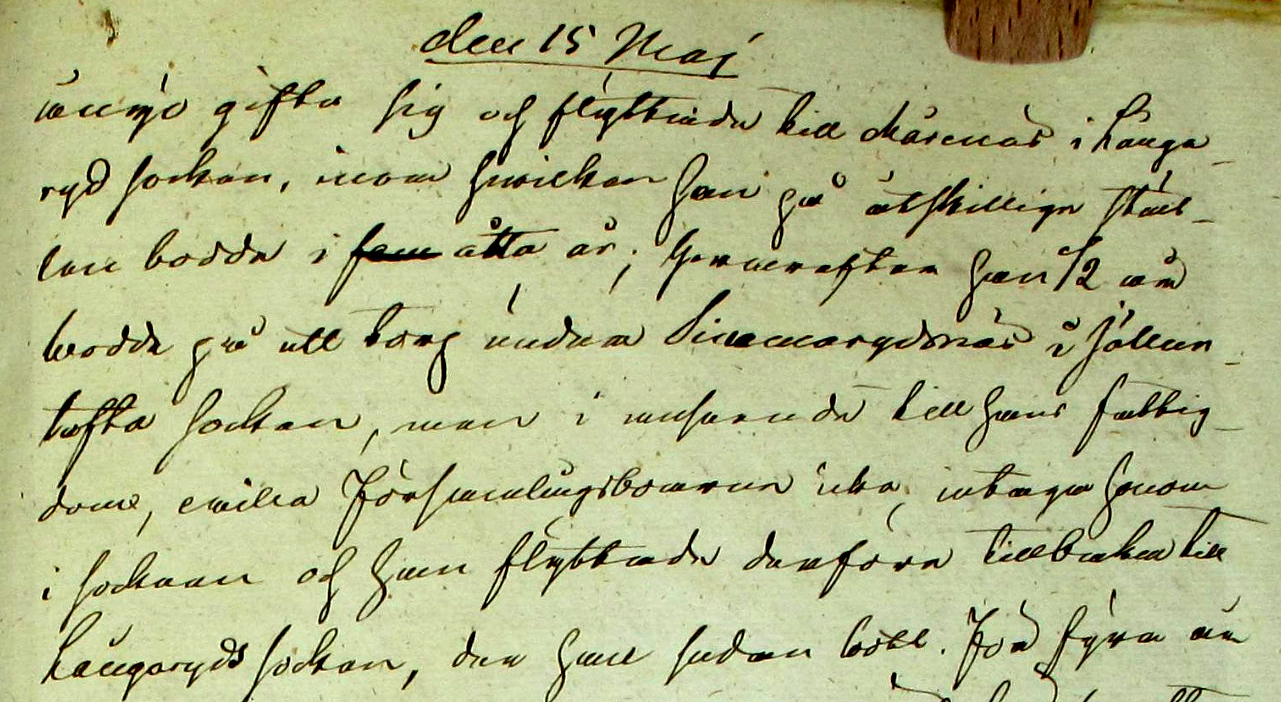 den 15 Maj
ånyo gifta sig och flyttade till Mårenäs i Långa-
ryd socken, inom hvilken han på åtskillige stäl-
len bodde i fem åtta år; hvarefter han 1/2 år
bodde på ett torp under Linnarydsnäs i Jällun-
tofta socken, men i anseende till hans fattig-
dom, ville Församlingsboerne icke intaga honom
i socknen och han flyttade derföre tillbaka till
Långaryds socken, der han sedan bott. För fyra år